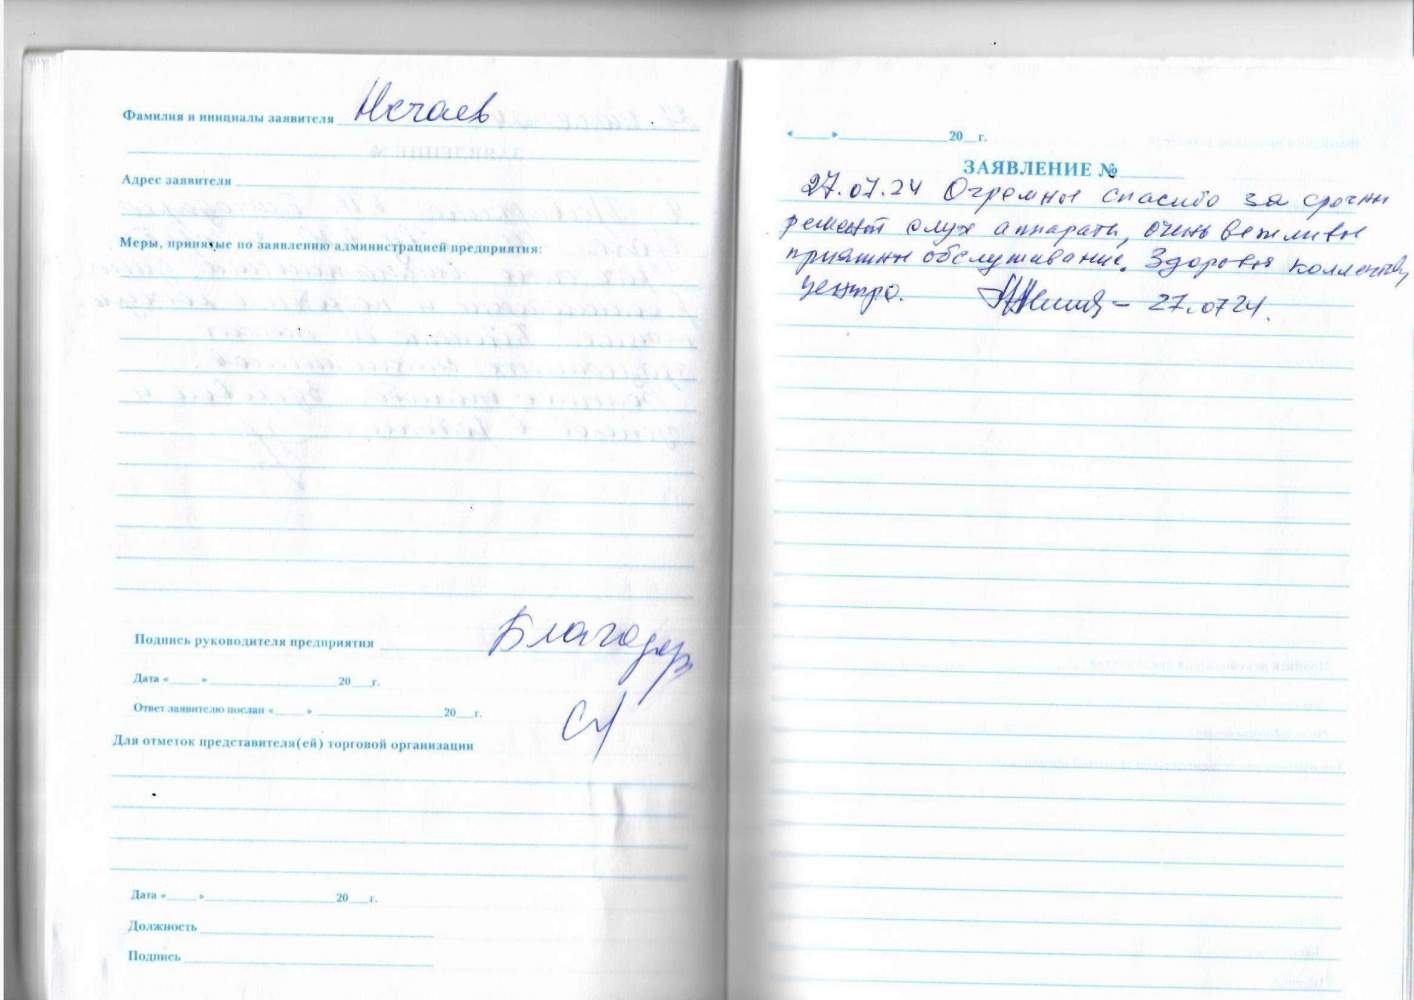 Фамилия и инициалы заявителя Нечаев
Адрес заявителя
Меры, принятые по заявлению администрацией предприятия:
Подпись руководителя предприятия Благодар
Дата «____» ____________ 20__г.
Ответ заявителю послан «____» ____________ 20__г.
Для отметок представителя(ей) торговой организации
Дата «____» ____________ 20__г.
Должность
Подпись
«____» ____________ 20__г.
ЗАЯВЛЕНИЕ №
27.07.24 Огромное спасибо за срочный
ремонт слух аппарата, очень вежливое
приятное обслуживание. Здоровья коллективу
центра. 27.0724.